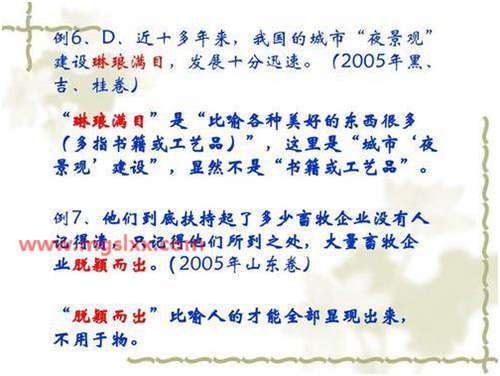 例6、D、近十多年来，我国的城市“夜景观”
建设琳琅满目，发展十分迅速。（2005年黑、
吉、桂卷）
“琳琅满目”是“比喻各种美好的东西很多
（多指书籍或工艺品）”，这里是“城市‘夜
景观’建设”，显然不是“书籍或工艺品”。
例7、他们到底扶持起了多少畜牧企业没有人
记得清，只记得他们所到之处，大量畜牧企
www.mgslxx.com
业脱颖而出。（2005年山东卷）
“脱颖而出”比喻人的才能全部显现出来，
不用于物。